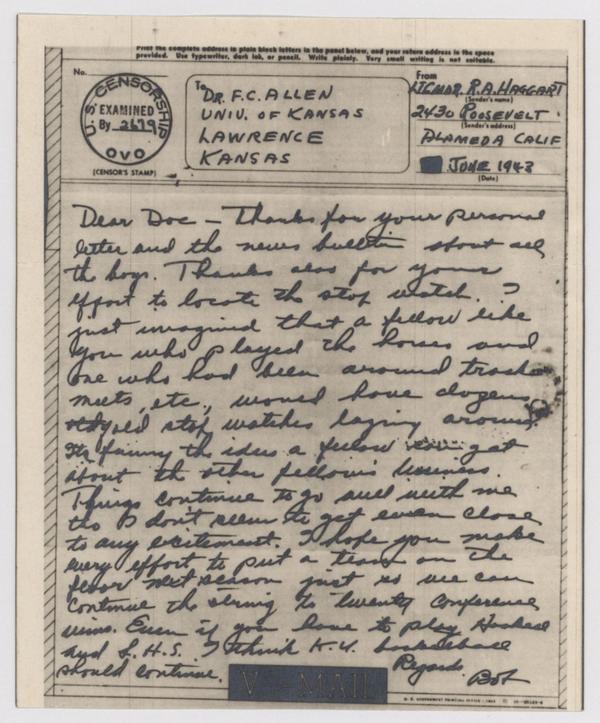 Print the complete address in plain block letters in the panel below, and your return address in the space
provided. Use typewriter, dark ink, or pencil. Write plainly. Very small writing is not suitable.
No.
U.S. CENSORSHIP
EXAMINED
By 2679
OVO
(CENSOR'S STAMP)
To
DR. F.C. ALLEN
UNIV. OF KANSAS
LAWRENCE
KANSAS
From
LTCMDR. R.A. HAGGART
(Sender's name)
2430 ROOSEVELT
(Sender's address)
ALAMEDA CALIF
JUNE 1943
(Date)
Dear Doc – Thanks for your personal
letter and the news bulletin about all
the boys. Thanks also for your
effort to locate the stop watch. I
just imagined that a fellow like
you who played the horses and
one who had been around track
meets, etc., would have dozens
old stop watches laying around.
Its funny the idea a fellow can get
about the other fellow's business.
Things continue to go well with me
tho I don't seem to get even close
to any excitement. I hope you make
every effort to put a team on the
floor next season just so we can
continue the string to twenty conference
wins. Even if you have to play
and L.H.S. I think K.U. basketball
should continue.
Regards
Bob
V - MAIL
U. S. GOVERNMENT PRINTING OFFICE : 1942